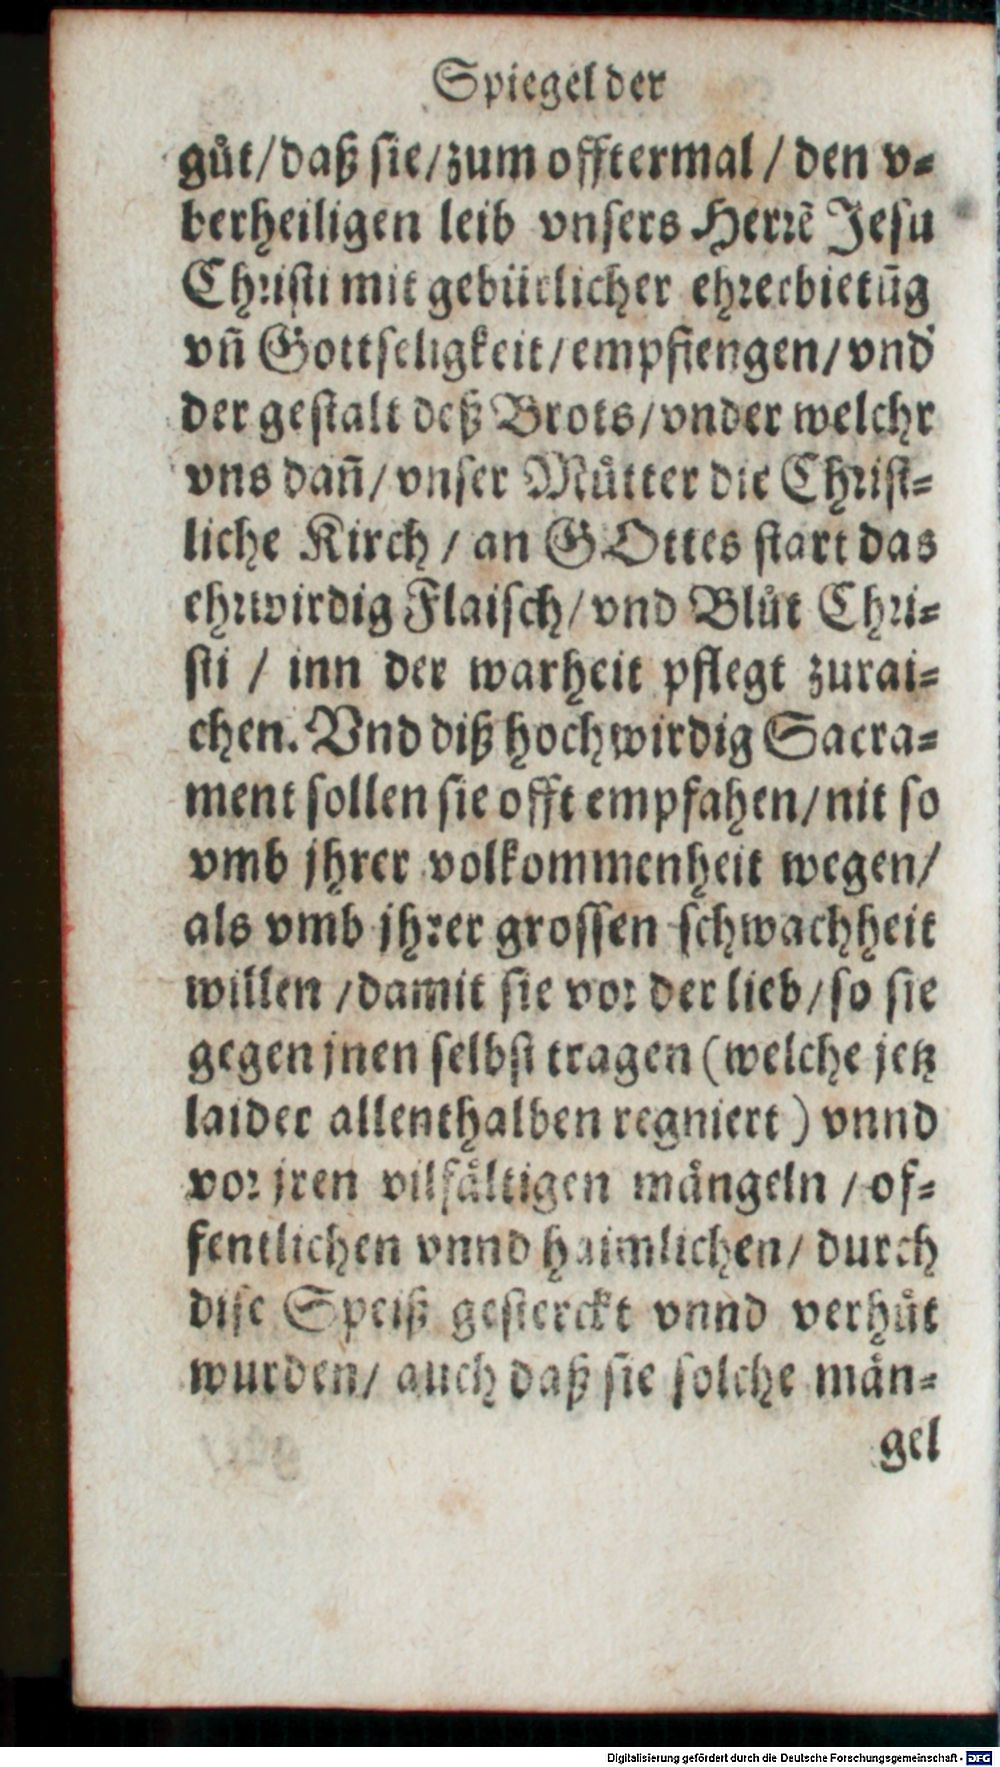 Spiegel der
gůt/daß sie/zum offtermal/den v-
berheiligen leib vnsers Herrē Jesu
Christi mit gebürlicher ehrerbietūg
vñ Gottseligkeit/empfiengen/vnd
der gestalt deß Brots/vnder welchr
vns dañ/vnser Můtter die Christ-
liche Kirch/an GOttes statt das
ehrwirdig Flaisch/vnd Blůt Chri-
sti / inn der warheit pflegt zurai-
chen. Vnd diß hochwirdig Sacra-
ment sollen sie offt empfahen/nit so
vmb jhrer volkommenheit wegen/
als vmb jhrer grossen schwachheit
willen /damit sie vor der lieb/so sie
gegen jnen selbst tragen (welche jetz
laider allenthalben regniert) vnnd
vor jren vilfältigen mängeln /of-
fentlichen vnnd haimlichen/ durch
dise Speiß gesterckt vnnd verhüt
wurden/ auch daß sie solche män-
gel
Digitalisierung gefördert durch die Deutsche Forschungsgemeinschaft - DFG